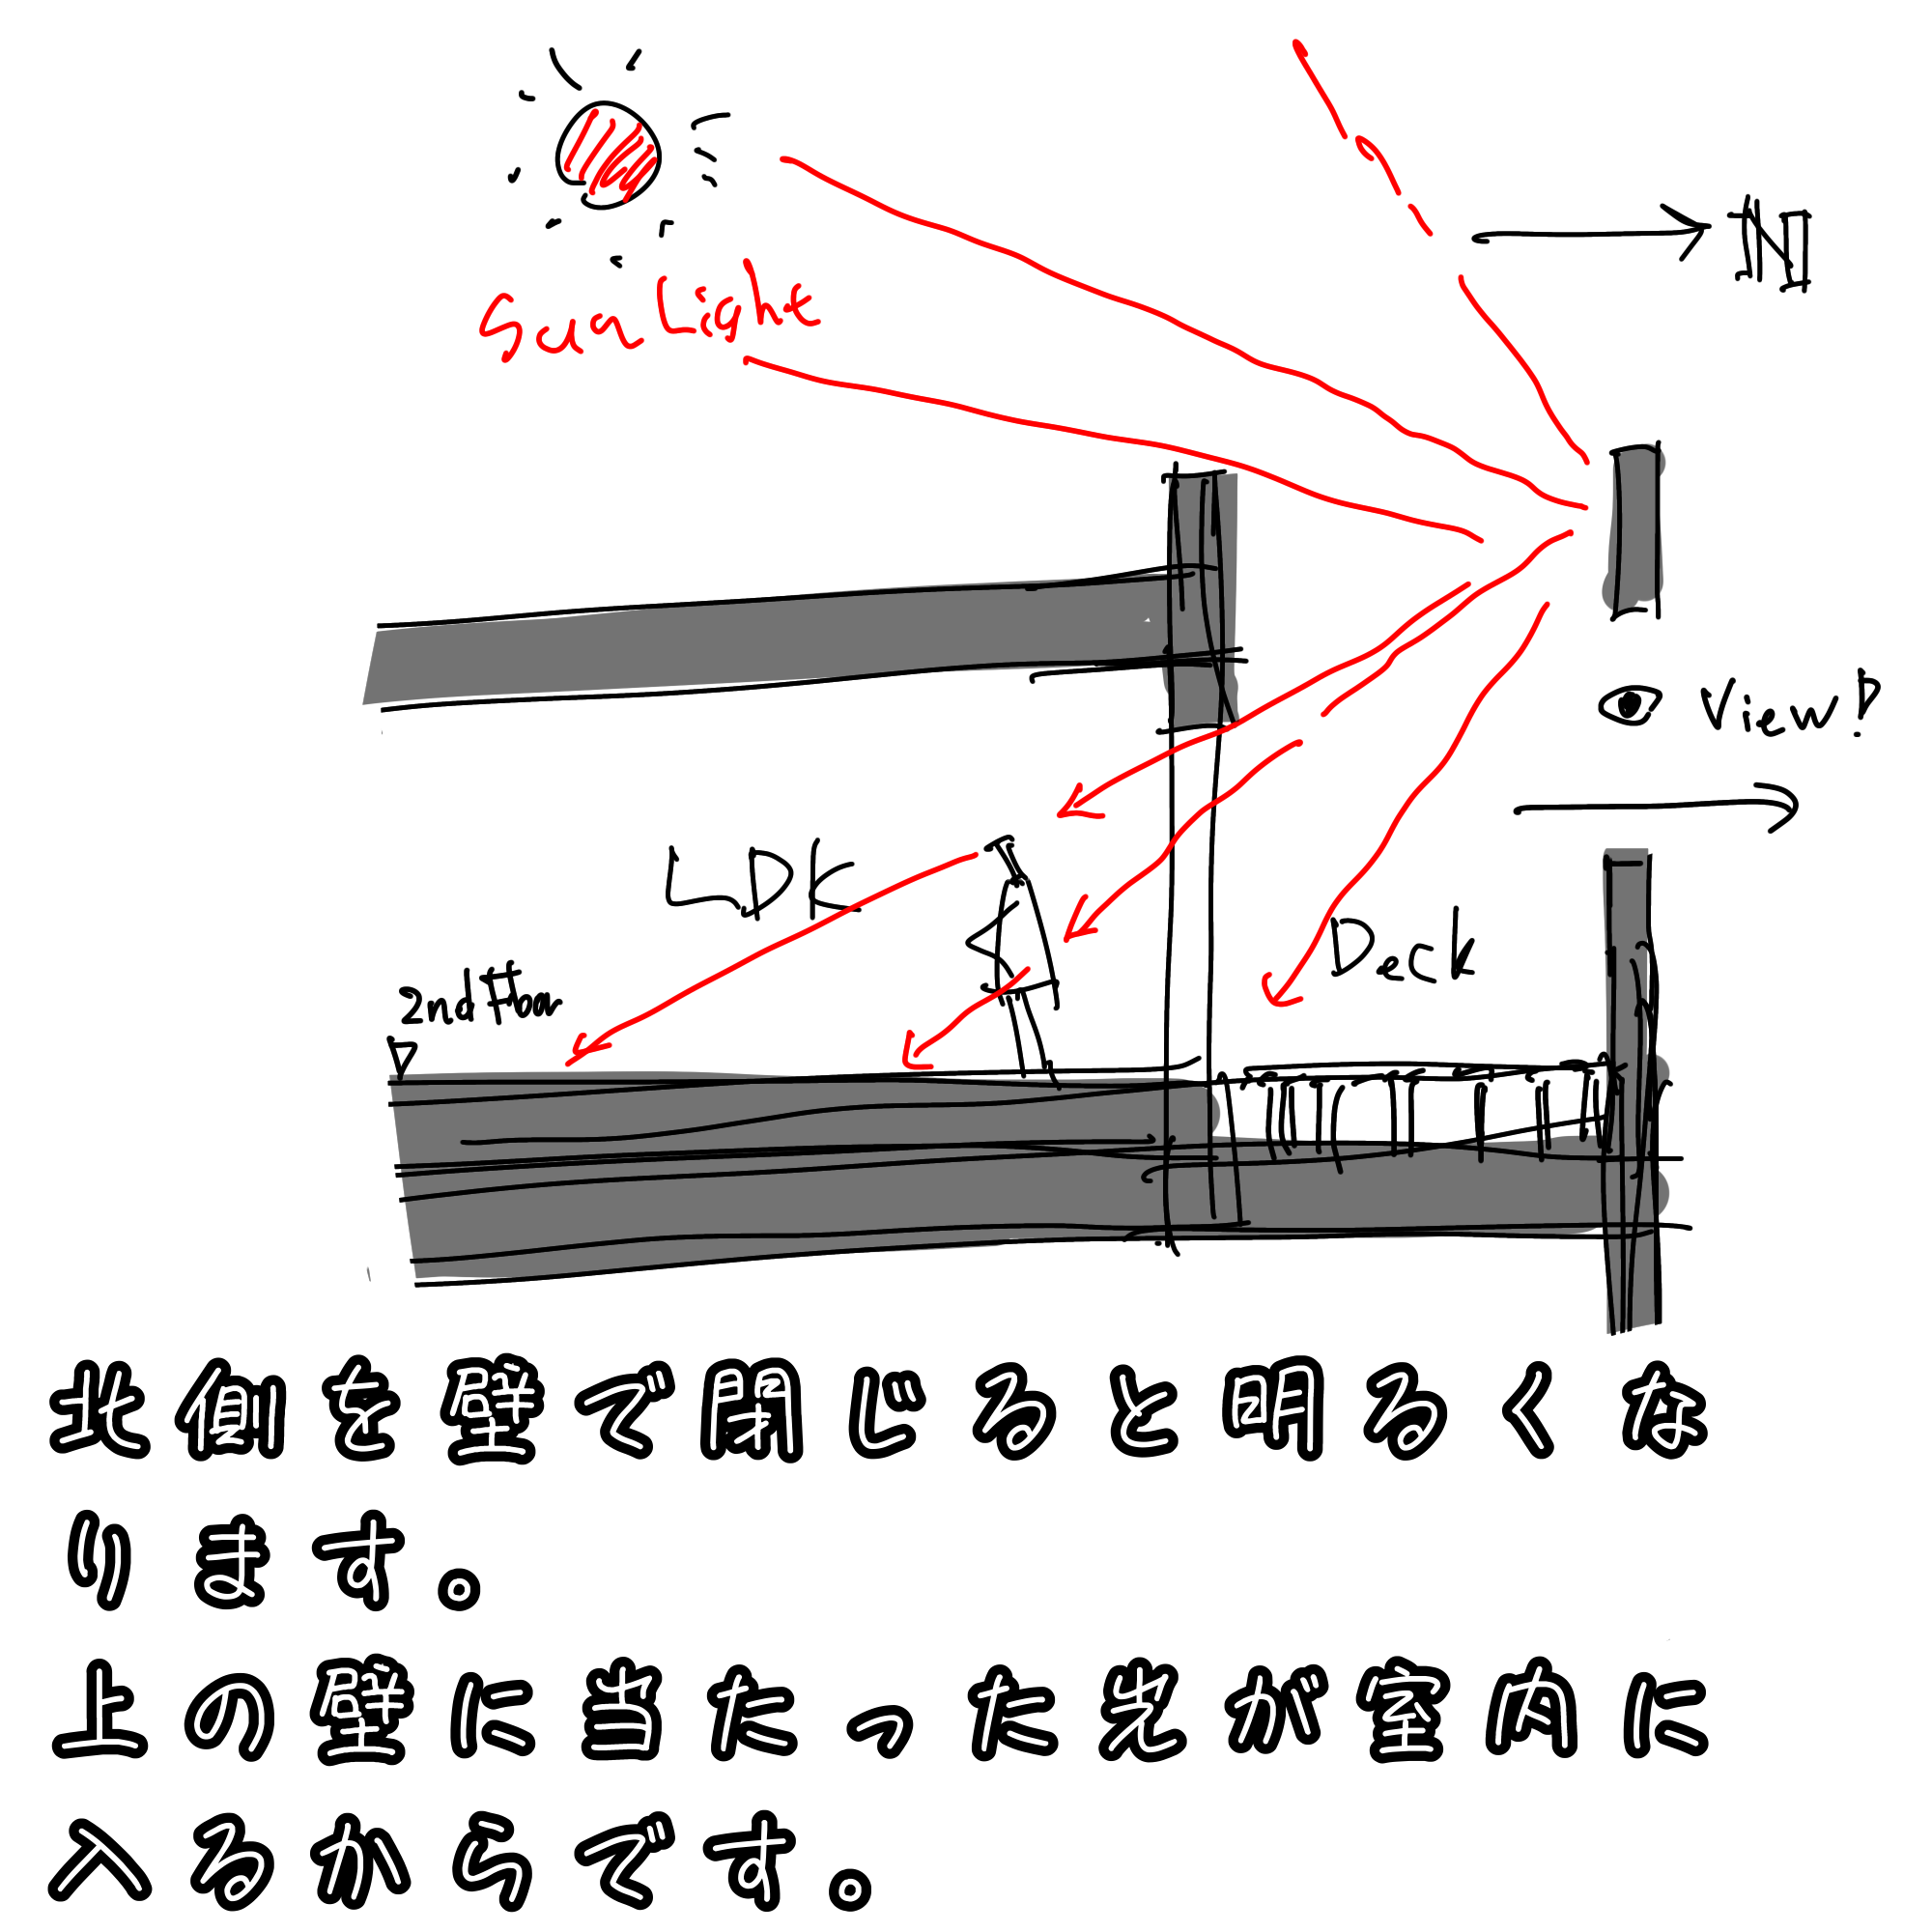 N
Sun Light
View?
LDK
Deck
2nd floor
北側を壁で閉じると明るくな
ります。
上の壁に当たった光が室内に
入るからです。